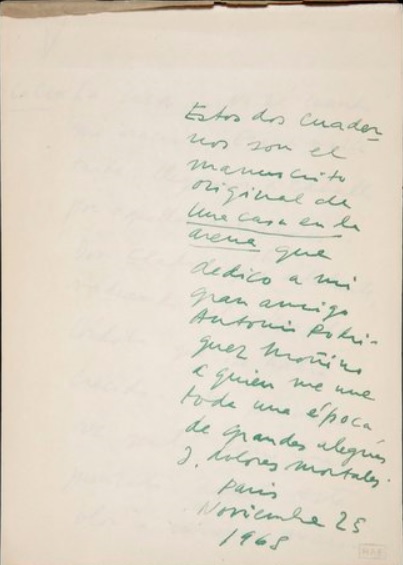 Estos dos cuader-
nos son el
manuscrito
original de
Una casa en la
arena que
dedico a mi
gran amigo
Antonio Rodri-
guez Moñino
a quien me une
toda una época
de grandes alegrias
y dolores mortales.
Paris
Noviembre 25
1965